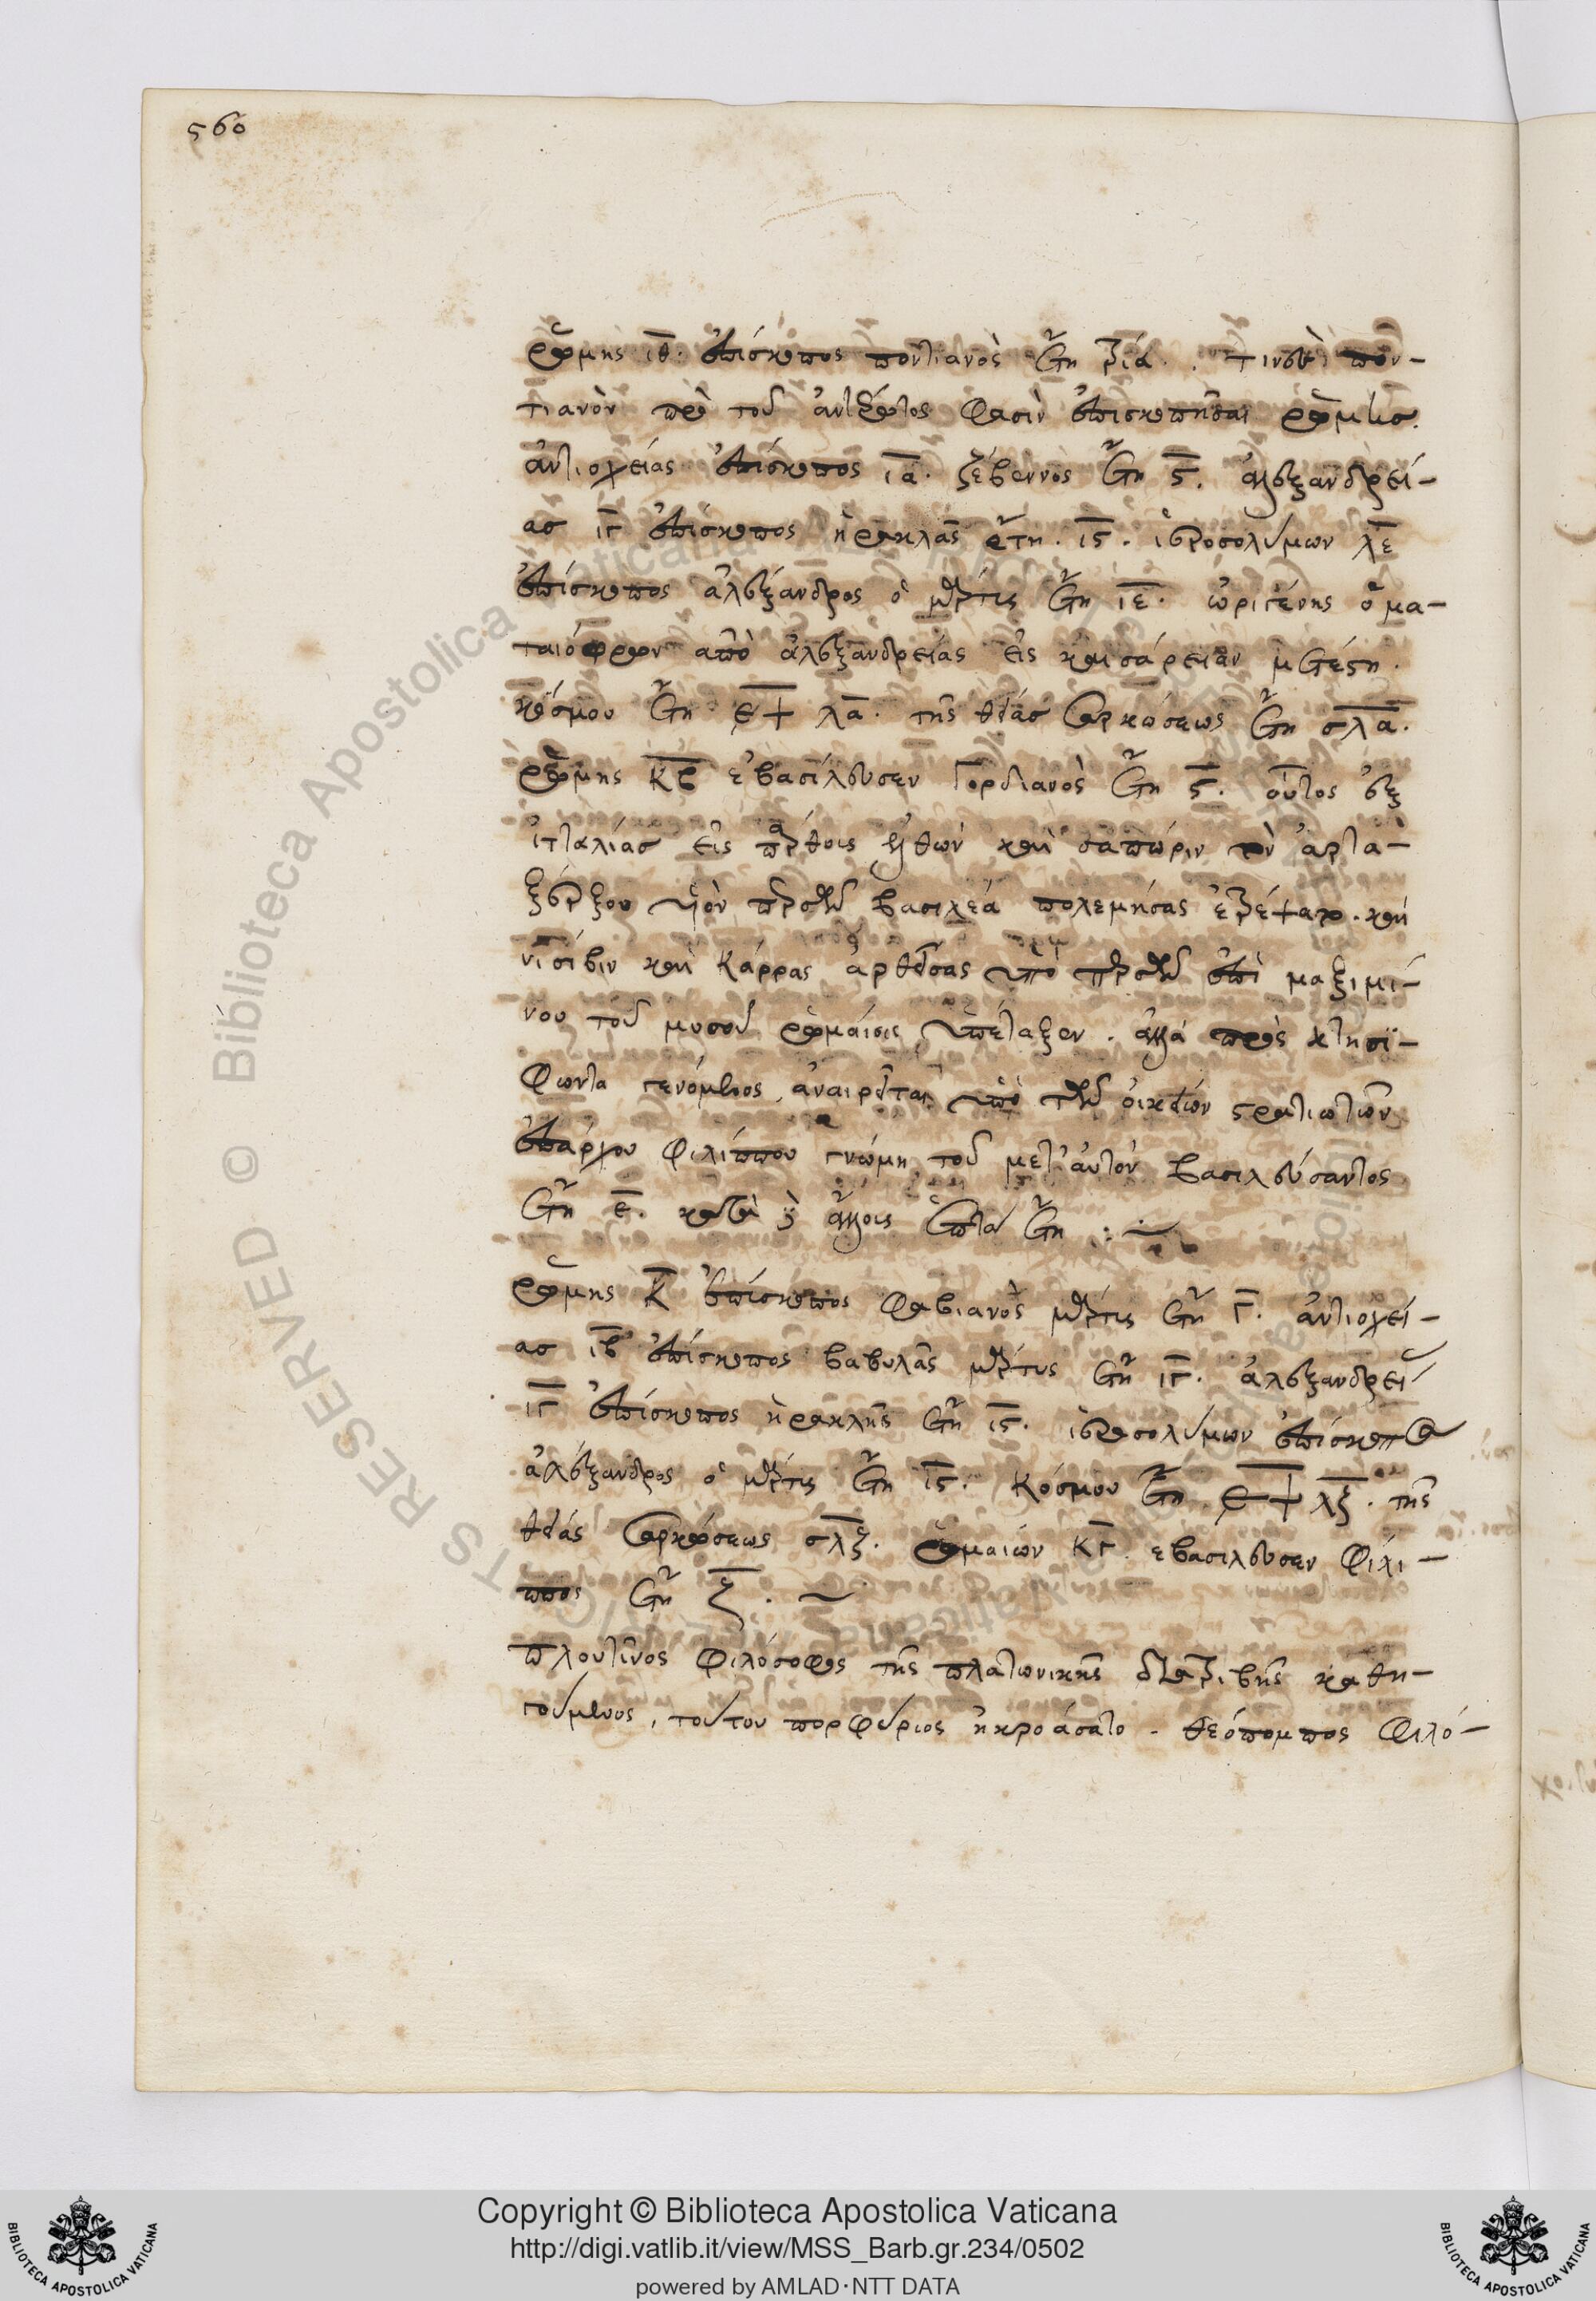 560
ρώμης ιθ. ἐπίσκοπος ποντιανὸς ἔτη τρία. τινὲς πον-
τιανὸν πρὸ τοῦ ἀντέρωτος φασὶν ἐπισκοπῆσαι ρώμης.
ἀντιοχείας ἐπίσκοπος ια. ζέβεννος ἔτη ς. ἀλεξανδρεί-
ας ιγ ἐπίσκοπος ἡρακλᾶς ἔτη. ις. ἱεροσολύμων λε
ἐπίσκοπος ἀλέξανδρος ὁ μάρτυς ἔτη ιε. ὠριγένης ὁ μα-
ταιόφρων ἀπὸ ἀλεξανδρείας εἰς καισάρειαν μετέστη.
κόσμου ἔτη εψλα. τῆς θείας σαρκώσεως ἔτη σλα.
ρώμης κβ ἐβασίλευσεν Γορδιανὸς ἔτη ς. οὗτος ἐξ
ἰταλίας εἰς πάρθοις ἐλθὼν καὶ σαπώριν τὸν ἀρτα-
ξέρξου υἱὸν περσῶν βασιλέα πολεμήσας ἐτρέψατο. καὶ
νίσιβιν καὶ κάρρας ἀρθείσας ὑπὸ περσῶν ἐπὶ μαξιμί-
νου τοῦ μυσοῦ ρωμαίοις ὑπέταξεν. ἀλλὰ πρὸς κτησι-
φῶντα γενόμενος, ἀναιρεῖται ὑπὸ τῶν οἰκείων στρατιωτῶν
ἐπάρχου φιλίππου γνώμη τοῦ μετ' αὐτὸν βασιλεύσαντος
ἔτη ε. κατὰ δὲ ἄλλοις ἑπτὰ ἔτη :~
ρώμης κ ἐπίσκοπος φαβιανὸς μάρτυς ἔτη γ. ἀντιοχεί-
ας ιβ ἐπίσκοπος βαβυλᾶς μάρτυς ἔτη ιγ. ἀλεξανδρεί
ιγ ἐπίσκοπος ἡρακλῆς ἔτη ις. ἱεροσολύμων ἐπίσκοπος
ἀλέξανδρος ὁ μάρτυς ἔτη ις. κόσμου ἔτη εψλξ. τῆς
θείας σαρκώσεως σλξ. ρωμαίων κγ ἐβασίλευσεν φίλι-
ππος ἔτη ζ. ~
πλουτῖνος φιλόσοφος τῆς πλατωνικῆς διατριβῆς καθη-
γούμενος, τούτου πορφύριος ἠκροάσατο. θεόπομπος φιλό-
© Biblioteca Apostolica Vaticana
RIGHTS RESERVED
Copyright © Biblioteca Apostolica Vaticana
http://digi.vatlib.it/view/MSS_Barb.gr.234/0502
powered by AMLAD·NTT DATA
BIBLIOTECA APOSTOLICA VATICANA
BIBLIOTECA APOSTOLICA VATICANA